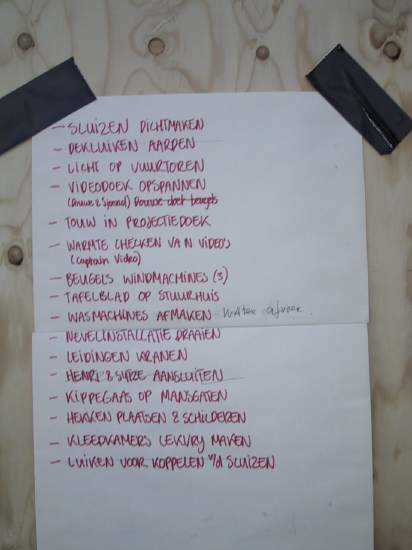 - SLUIZEN DICHTMAKEN
- DEKLUIKEN AARDEN
- LICHT OP VUURTOREN
- VIDEODOEK OPSPANNEN
(Douwe & Sjoerd) Douwe doet beugels
- TOUW IN PROJECTIEDOEK
- WARMTE CHECKEN VAN VIDEO'S
(Captain Video)
- BEUGELS WINDMACHINES (3)
- TAFELBLAD OP STUURHUIS
- WASMACHINES AFMAKEN - water afvoer.
- NEVELINSTALLATIE DRAAIEN
- LEIDINGEN KRANEN
- HENRI & SIETZE AANSLUITEN
- KIPPEGAAS OP MANSGATEN
- HEKKEN PLAATSEN & SCHILDEREN
- KLEEDKAMERS LEKVRY MAKEN
- LUIKEN VOOR KOPPELEN v/d SLUIZEN